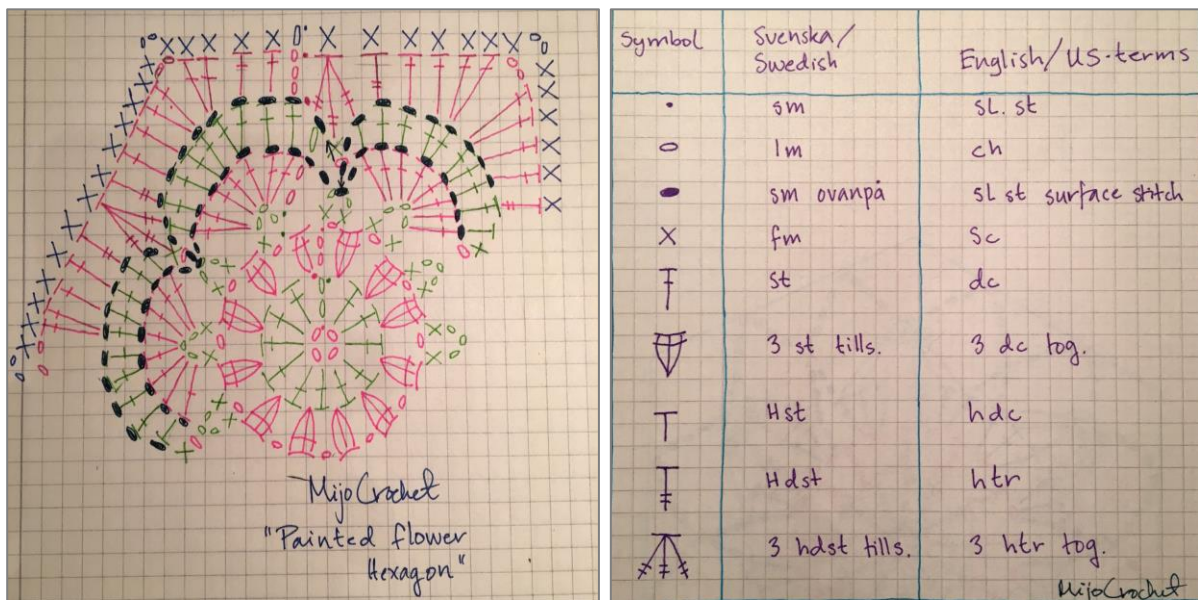 MijoCrochet
"Painted flower
Hexagon"
Symbol Svenska/ Swedish English/US-terms
sm sl. st
lm ch
sm ovanpå sl st surface stitch
fm sc
st dc
3 st tills. 3 dc tog.
Hst hdc
Hdst htr
3 hdst tills. 3 htr tog.
MijoCrochet